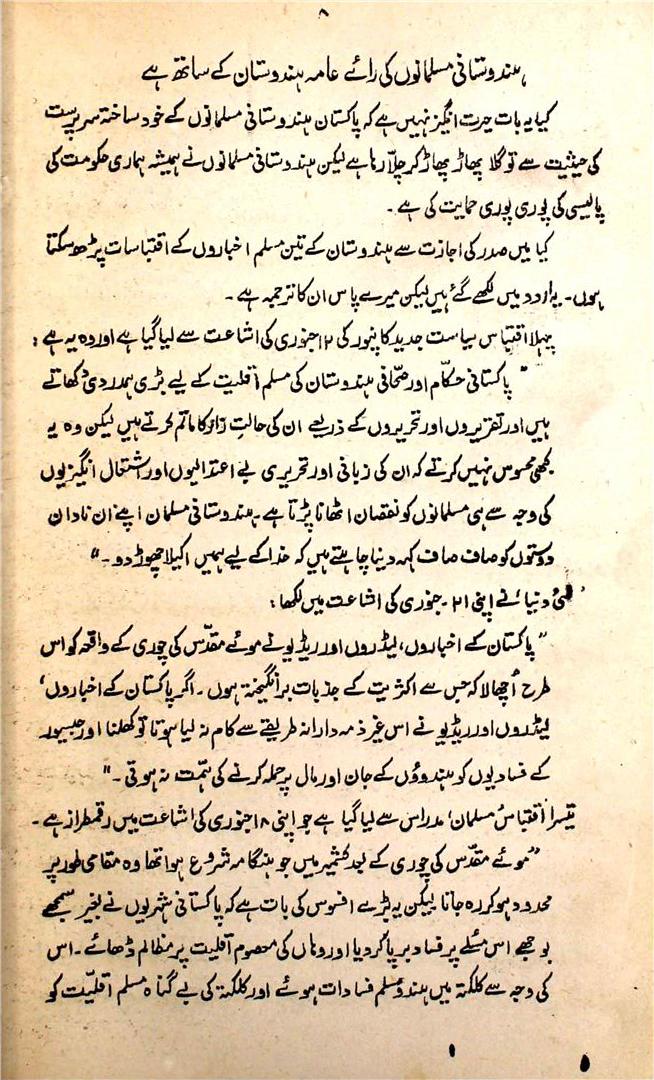 ۸
ہندوستانی مسلمانوں کی رائے عامہ ہندوستان کے ساتھ ہے
کیا یہ بات حیرت انگیز نہیں ہے کہ پاکستان ہندوستانی مسلمانوں کے خود ساختہ سرپرست
کی حیثیت سے تو گلا پھاڑ پھاڑ کر چلّا رہا ہے لیکن ہندوستانی مسلمانوں نے ہمیشہ ہماری حکومت کی
پالیسی کی پوری پوری حمایت کی ہے۔
کیا میں صدر کی اجازت سے ہندوستان کے تین مسلم اخباروں کے اقتباسات پڑھ سکتا
ہوں۔ یہ اردو میں لکھے گئے ہیں لیکن میرے پاس ان کا ترجمہ ہے۔
پہلا اقتباس سیاست جدید کانپور کی ۱۲ جنوری کی اشاعت سے لیا گیا ہے اور وہ یہ ہے :
" پاکستانی حکّام اور صحافی ہندوستان کی مسلم اقلیت کے لیے بڑی ہمدردی دکھاتے
ہیں اور تقریروں اور تحریروں کے ذریعے ان کی حالتِ زار کا ماتم کرتے ہیں لیکن وہ یہ
کبھی محسوس نہیں کرتے کہ ان کی زبانی اور تحریری بے اعتدالیوں اور اشتعال انگیزیوں
کی وجہ سے ہی مسلمانوں کو نقصان اٹھانا پڑتا ہے۔ ہندوستانی مسلمان اپنے ان نادان
دوستوں کو صاف صاف کہہ دینا چاہتے ہیں کہ خدا کے لیے ہمیں اکیلا چھوڑ دو۔"
'نئی دنیا' نے اپنی ۲۱۔ جنوری کی اشاعت میں لکھا :
" پاکستان کے اخباروں، لیڈروں اور ریڈیو نے موئے مقدّس کی چوری کے واقعہ کو اس
طرح اُچھالا کہ جس سے اکثریت کے جذبات برانگیختہ ہوں۔ اگر پاکستان کے اخباروں،
لیڈروں اور ریڈیو نے اس غیر ذمہ دارانہ طریقے سے کام نہ لیا ہوتا تو کھلنا اور جیسور
کے فسادیوں کو ہندوؤں کے جان اور مال پر حملہ کرنے کی ہمّت نہ ہوتی۔"
تیسرا اقتباس 'مسلمان' مدراس سے لیا گیا ہے جو اپنی ۱۸ جنوری کی اشاعت میں رقمطراز ہے۔
" موئے مقدّس کی چوری کے بعد کشمیر میں جو ہنگامہ شروع ہوا تھا وہ مقامی طور پر
محدود ہو کر رہ جاتا لیکن یہ بڑے افسوس کی بات ہے کہ پاکستانی شہریوں نے بغیر سمجھے
بوجھے اس مسئلے پر فساد برپا کر دیا اور وہاں کی معصوم اقلیت پر مظالم ڈھائے۔ اس
کی وجہ سے کلکتہ میں ہندو مسلم فسادات ہوئے اور کلکتہ کی بے گناہ مسلم اقلیّت کو